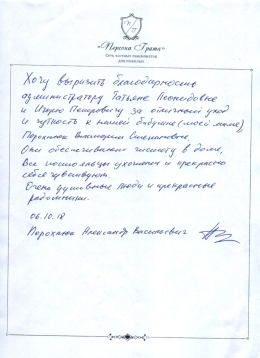 «Персона Грата»
Сеть частных пансионатов
для пожилых
Хочу выразить благодарность
администратору Татьяне Леонидовне
и Игорю Петровичу за отличный уход
и чуткость к нашей бабушке (моей маме)
Они обеспечивают чистоту в доме,
Все постояльцы ухожены и прекрасно
себя чувствуют.
Очень душевные люди и прекрасные
работники.
06.10.18
Александр Васильевич